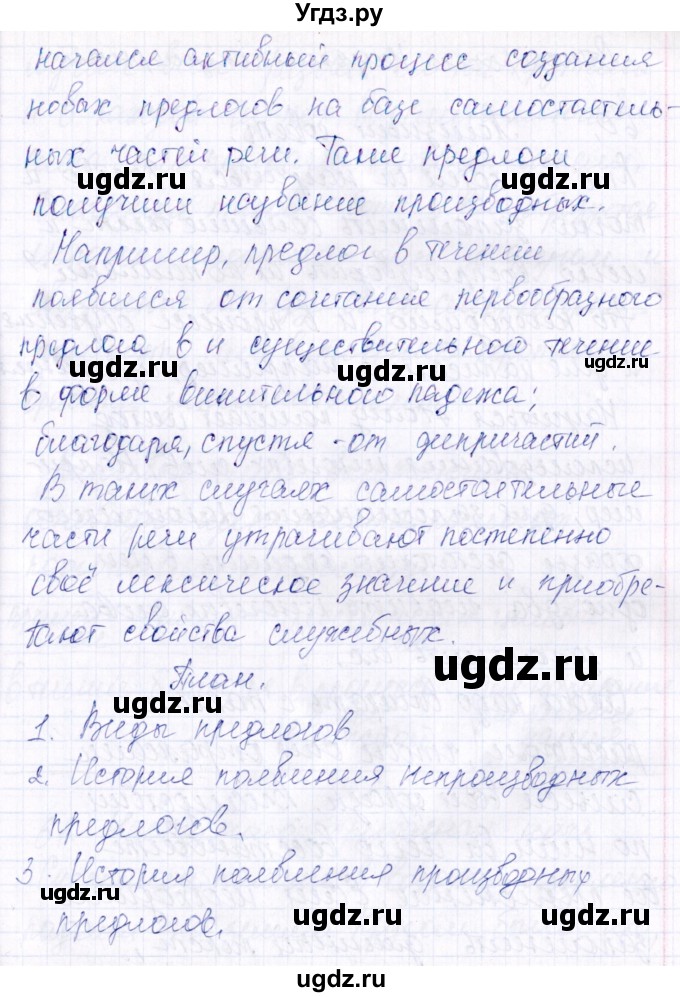 Угдз.ру
начался активный процесс создания
новых предлогов на базе самостоятель-
ных частей речи. Такие предлоги
ugdz.ru ugdz.ru
получили название производных.
Например, предлог в течении
появился от сочетание первообразного
предлога в и существительной течение
ugdz.ru ugdz.ru ugdz.ru
в форме винительного падежа;
благодаря, спустя - от дипричастий.
В таких случаях самостоятельные
части речи утрачивают постепенно
своё лексическое значение и приобре-
тают свойства служебных.
ugdz.ru
План.
ugdz.ru
1. Виды предлогов
2. История появления непроизводных
предлогов.
3. История появления производных
ugdz.ru
предлогов.
ugdz.ru ugdz.ru
ugdz.ru